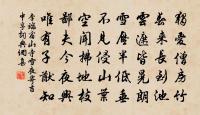 獨愛僧房竹
春來長到池
雲遮皆晃朗
雪壓半低垂
不見侵山葉
空聞拂地枝
鄙夫今夜興
唯有子猷知
李端宿山寺雪夜寄吉
中孚詞典網集